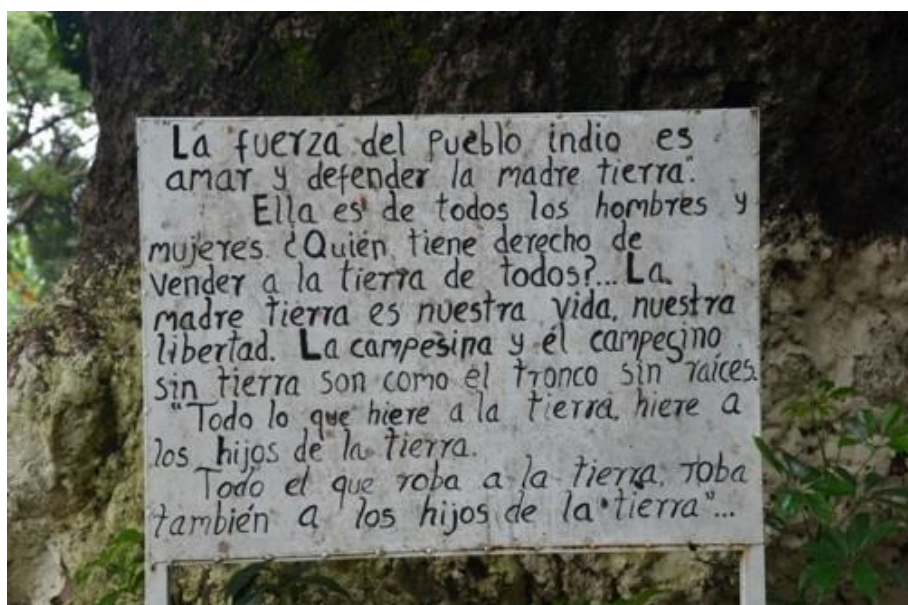 "La fuerza del pueblo indio es
amar y defender la madre tierra".
Ella es de todos los hombres y
mujeres. ¿Quién tiene derecho de
vender a la tierra de todos?... La
madre tierra es nuestra vida, nuestra
libertad. La campesina y el campecino
sin tierra son como el tronco sin raíces.
"Todo lo que hiere a la tierra, hiere a
los hijos de la tierra.
Todo el que roba a la tierra, roba
también a los hijos de la tierra"...